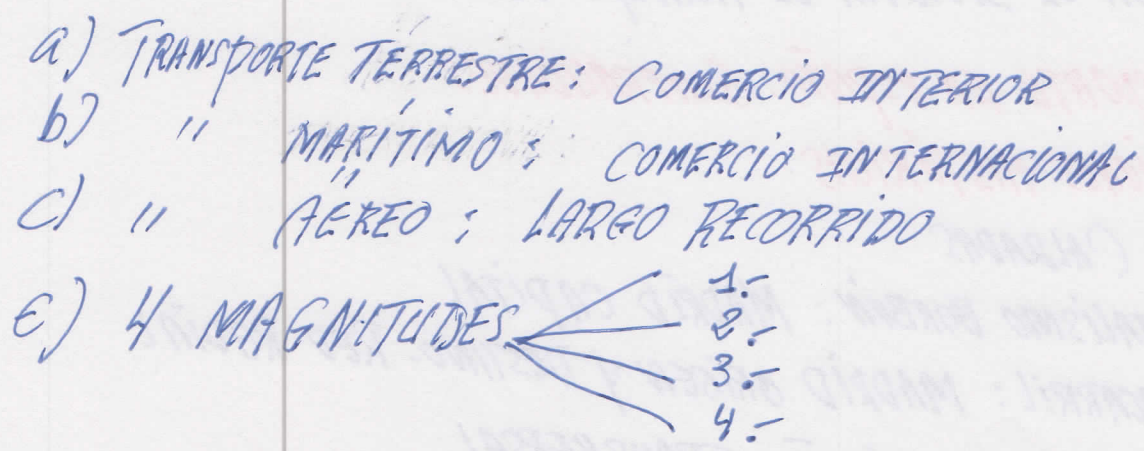 a) TRANSPORTE TERRESTRE: COMERCIO INTERIOR
b) " MARÍTIMO: COMERCIO INTERNACIONAL
c) " AÉREO: LARGO RECORRIDO
E) 4 MAGNITUDES 1.-
2.-
3.-
4.-